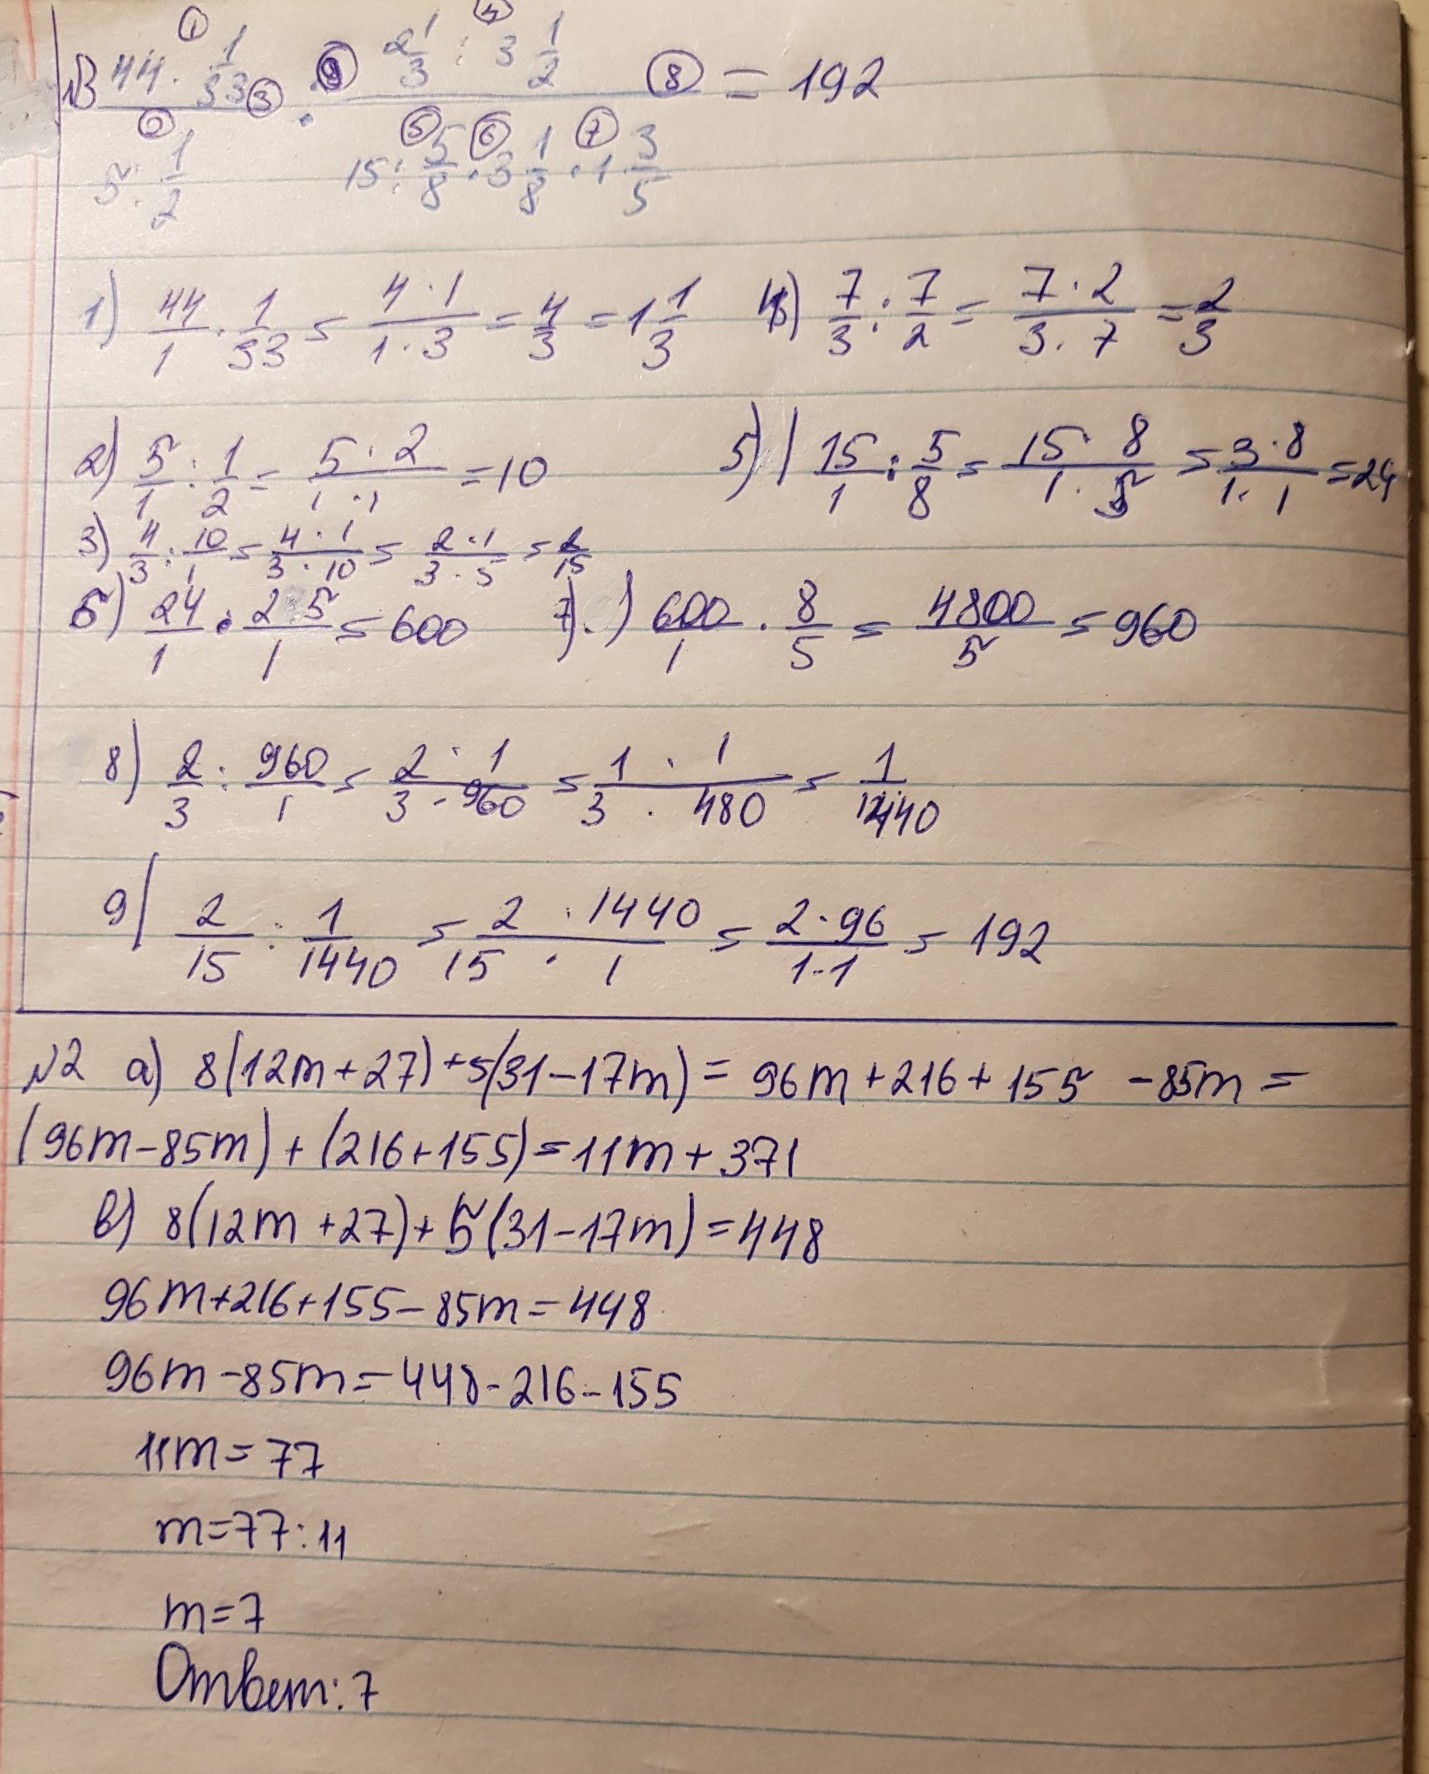 №3 (44 · 1/33) / (5 : 1/2) : (2 1/3 : 3 1/2) / (15 : 5/8 · 3 1/8 · 1 3/5) = 192
1) 44/1 · 1/33 = 4·1/1·3 = 4/3 = 1 1/3 4) 7/3 : 7/2 = 7·2/3·7 = 2/3
2) 5/1 : 1/2 = 5·2/1·1 = 10 5) 15/1 : 5/8 = 15·8/1·5 = 3·8/1·1 = 24
3) 4/3 : 10/1 = 4·1/3·10 = 2·1/3·5 = 2/15
6) 24/1 · 25/1 = 600 7) 600/1 · 8/5 = 4800/5 = 960
8) 2/3 : 960/1 = 2·1/3·960 = 1·1/3·480 = 1/1440
9) 2/15 : 1/1440 = 2·1440/15·1 = 2·96/1·1 = 192
№2 а) 8(12m+27)+5(31-17m) = 96m+216+155 -85m =
(96m-85m)+(216+155)=11m+371
в) 8(12m+27)+5(31-17m)=448
96m+216+155-85m=448
96m-85m=448-216-155
11m=77
m=77:11
m=7
Ответ: 7